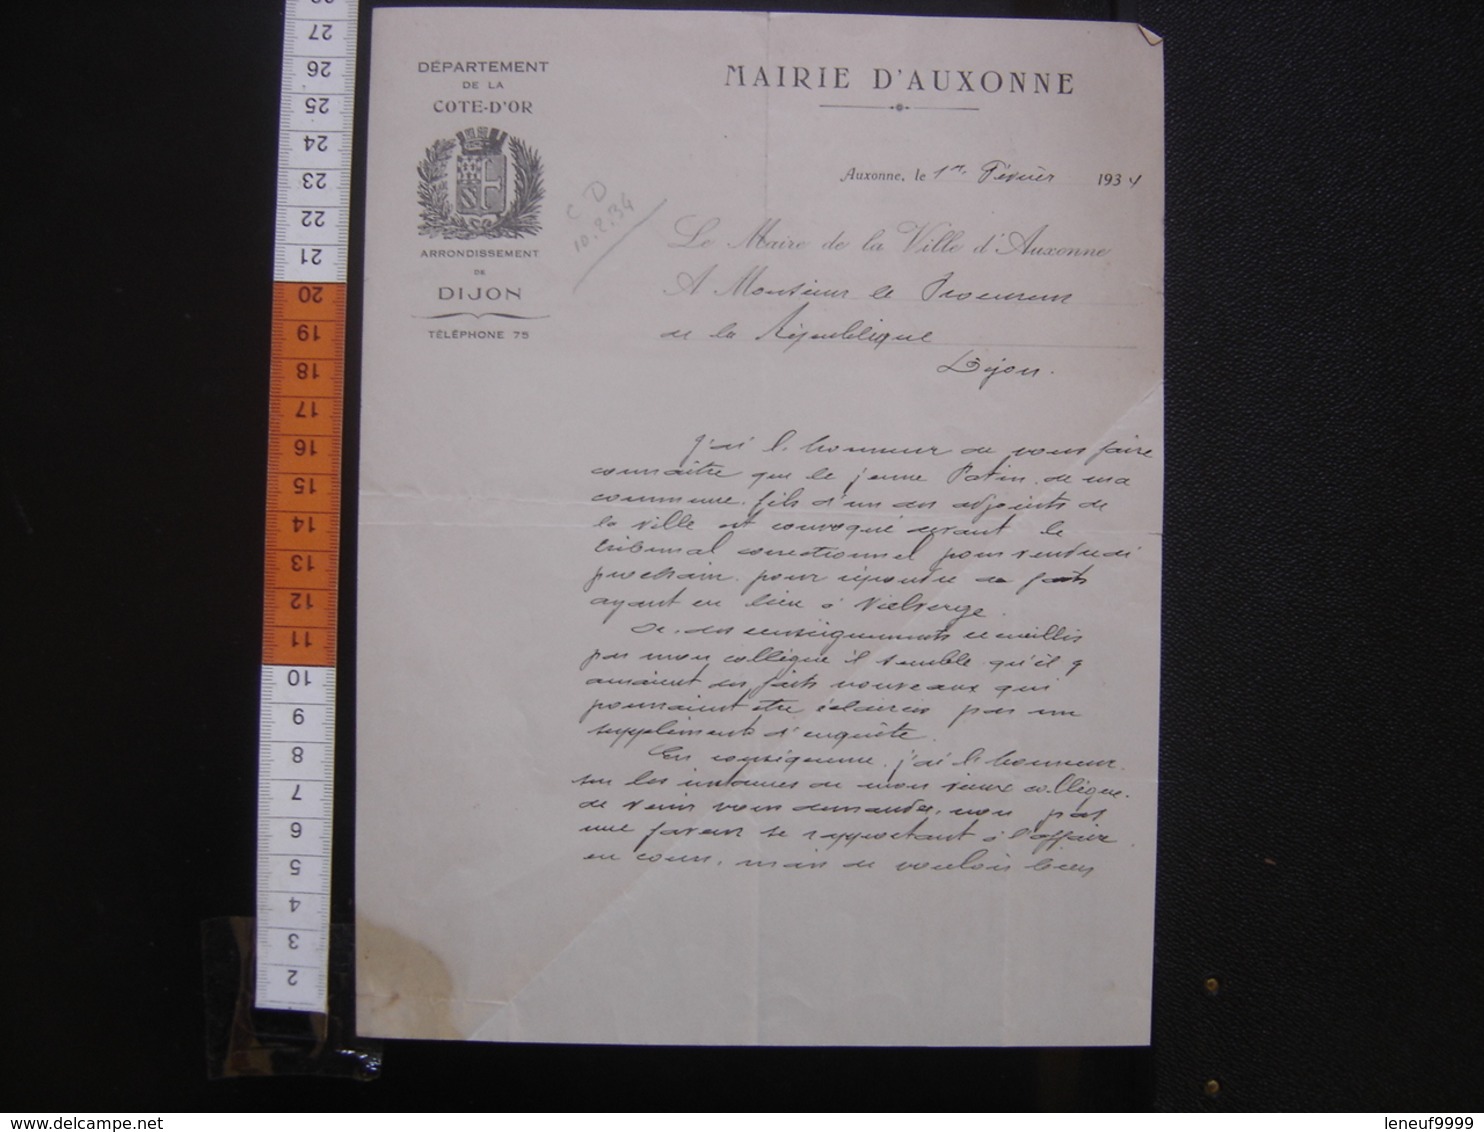 DÉPARTEMENT
DE LA
COTE-D'OR
ARRONDISSEMENT
DE
DIJON
TÉLÉPHONE 75
C D
10.2.34
MAIRIE D'AUXONNE
Auxonne, le 1er Février 1934
Le Maire de la Ville d'Auxonne
A Monsieur le Procureur
de la République
Dijon.
J'ai l'honneur de vous faire
connaître que le jeune Patin de ma
commune, fils d'un des adjoints de
la ville est convoqué devant le
tribunal correctionnel pour vendredi
prochain pour répondre de faits
ayant eu lieu à Vielverge.
Or, des renseignements recueillis
par mon collègue il semble qu'il y
auraient des faits nouveaux qui
pourraient être éclaircis par un
supplément d'enquête.
En conséquence, j'ai l'honneur
sur les instances de mon vieux collègue
de venir vous demander, non pas
une faveur se rapportant à l'affaire
en cours, mais de vouloir bien
28
27
26
25
24
23
22
21
20
19
18
17
16
15
14
13
12
11
10
9
8
7
6
5
4
3
2
www.delcampe.net
leneuf9999